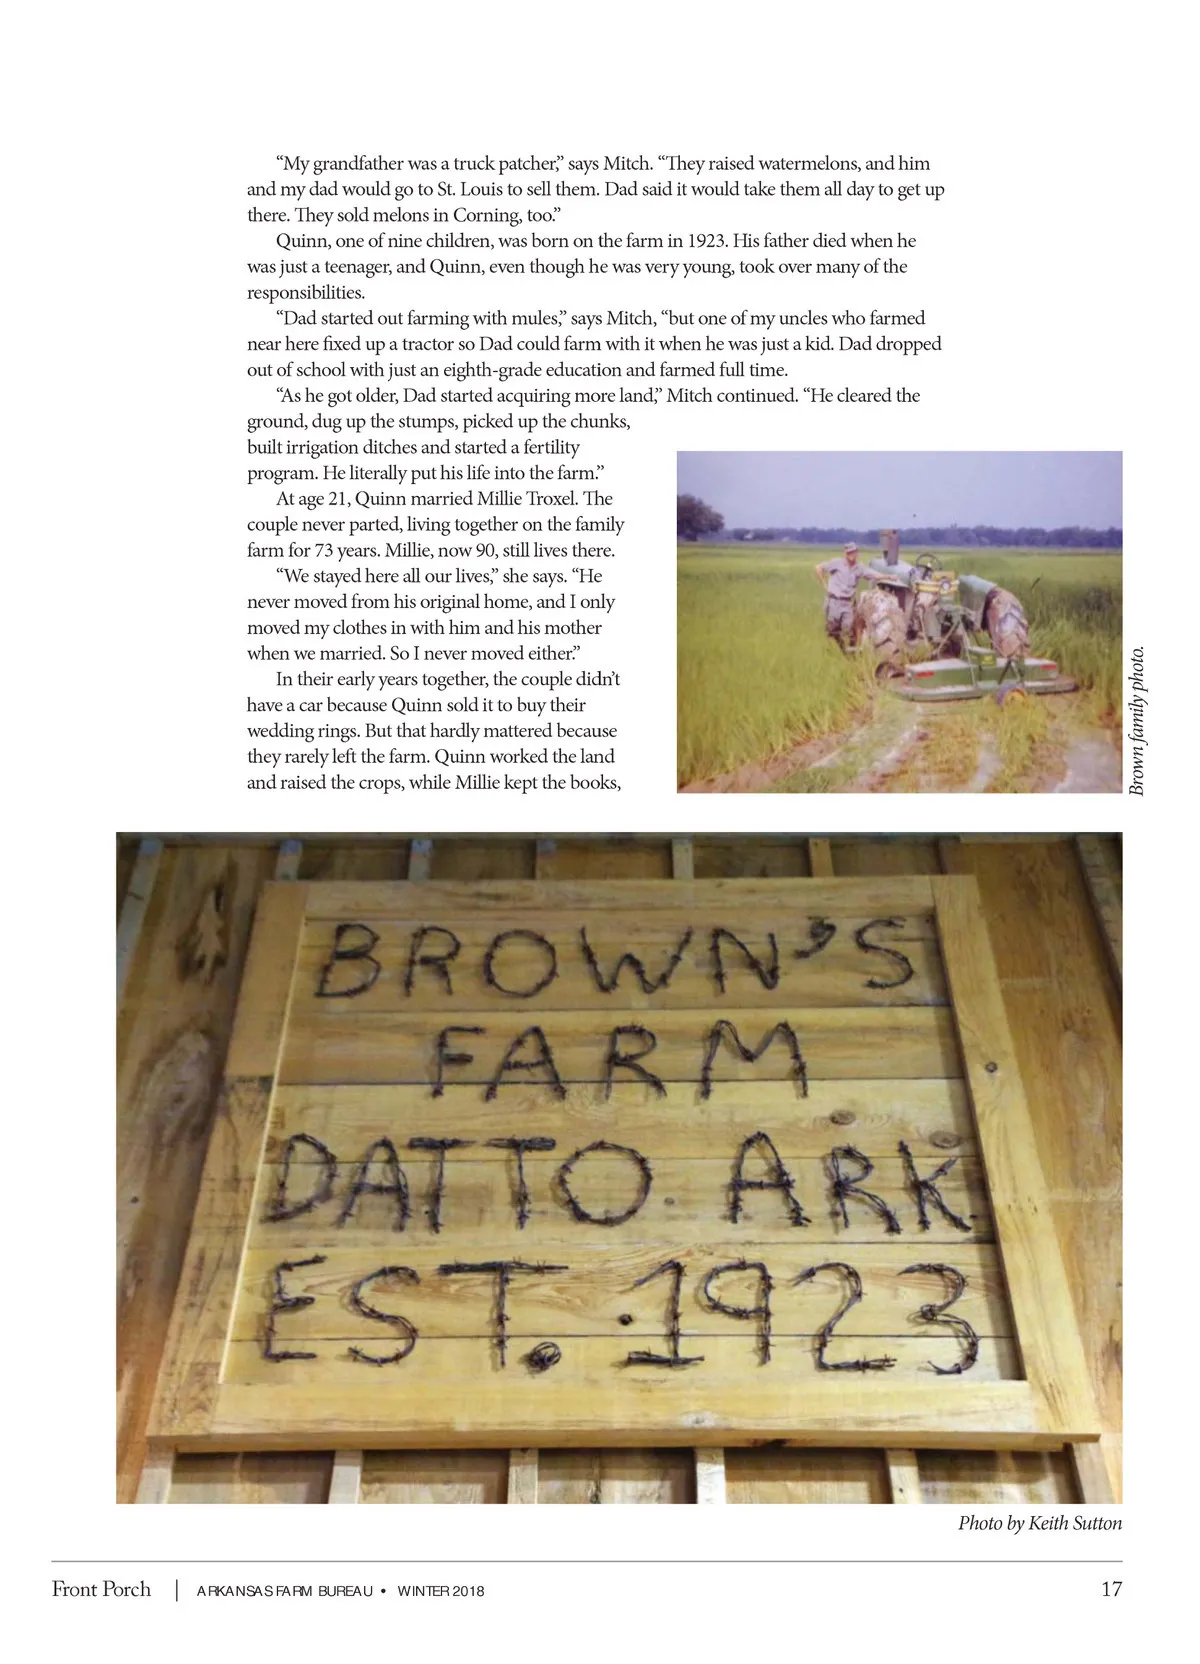 “My grandfather was a truck patcher,” says Mitch. “They raised watermelons, and him
and my dad would go to St. Louis to sell them. Dad said it would take them all day to get up
there. They sold melons in Corning, too.”
Quinn, one of nine children, was born on the farm in 1923. His father died when he
was just a teenager, and Quinn, even though he was very young, took over many of the
responsibilities.
“Dad started out farming with mules,” says Mitch, “but one of my uncles who farmed
near here fixed up a tractor so Dad could farm with it when he was just a kid. Dad dropped
out of school with just an eighth-grade education and farmed full time.
“As he got older, Dad started acquiring more land,” Mitch continued. “He cleared the
ground, dug up the stumps, picked up the chunks,
built irrigation ditches and started a fertility
program. He literally put his life into the farm.”
At age 21, Quinn married Millie Troxel. The
couple never parted, living together on the family
farm for 73 years. Millie, now 90, still lives there.
“We stayed here all our lives,” she says. “He
never moved from his original home, and I only
moved my clothes in with him and his mother
when we married. So I never moved either.”
In their early years together, the couple didn’t
have a car because Quinn sold it to buy their
wedding rings. But that hardly mattered because
they rarely left the farm. Quinn worked the land
and raised the crops, while Millie kept the books,
Brown family photo.
BROWN’S
FARM
DATTO. ARK.
EST. · 1923
Photo by Keith Sutton
Front Porch | ARKANSAS FARM BUREAU • WINTER 2018
17